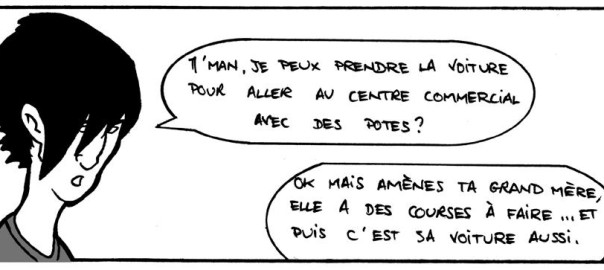 M'MAN, JE PEUX PRENDRE LA VOITURE
POUR ALLER AU CENTRE COMMERCIAL
AVEC DES POTES?
OK MAIS AMÈNES TA GRAND MÈRE,
ELLE A DES COURSES À FAIRE ... ET
PUIS C'EST SA VOITURE AUSSI.